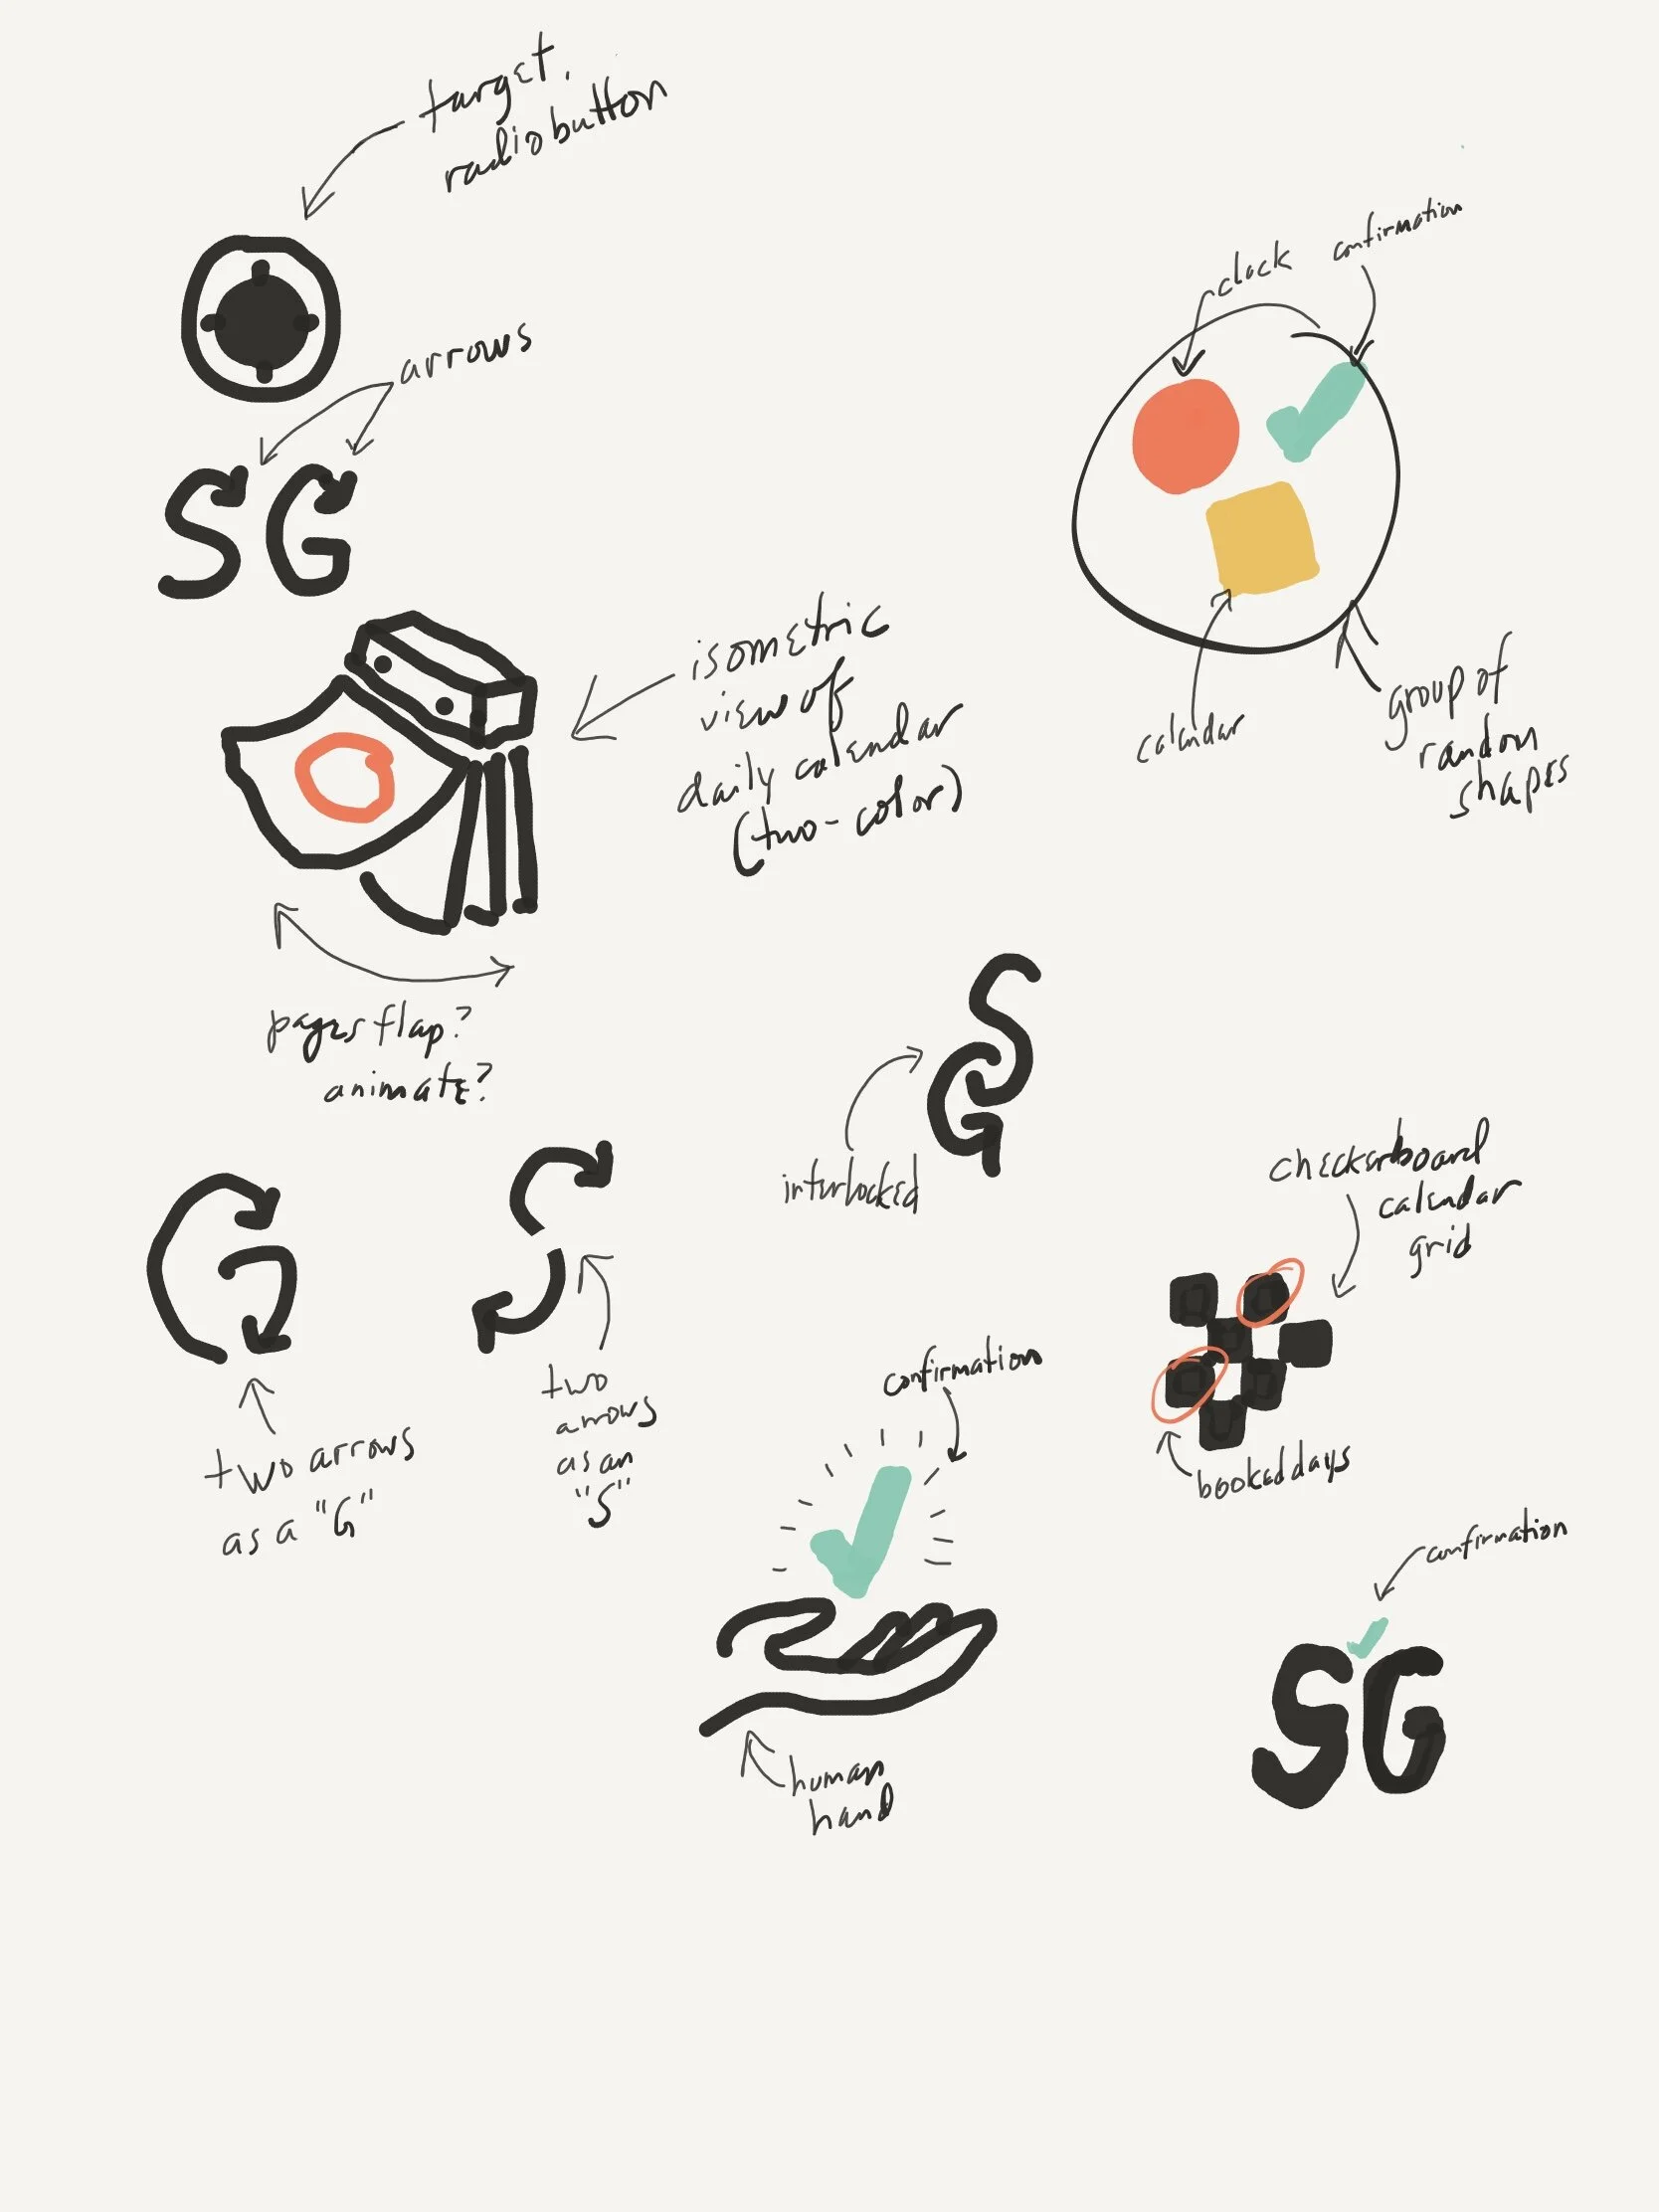 target,
radio button
arrows
SG
isometric
view of
daily calendar
(two-color)
pages flap?
animate?
clock
confirmation
calendar
group of
random
shapes
S
G
interlocked
G
two arrows
as a "G"
S
two
arrows
as an
"S"
checkerboard
calendar
grid
booked days
confirmation
human
hand
confirmation
SG